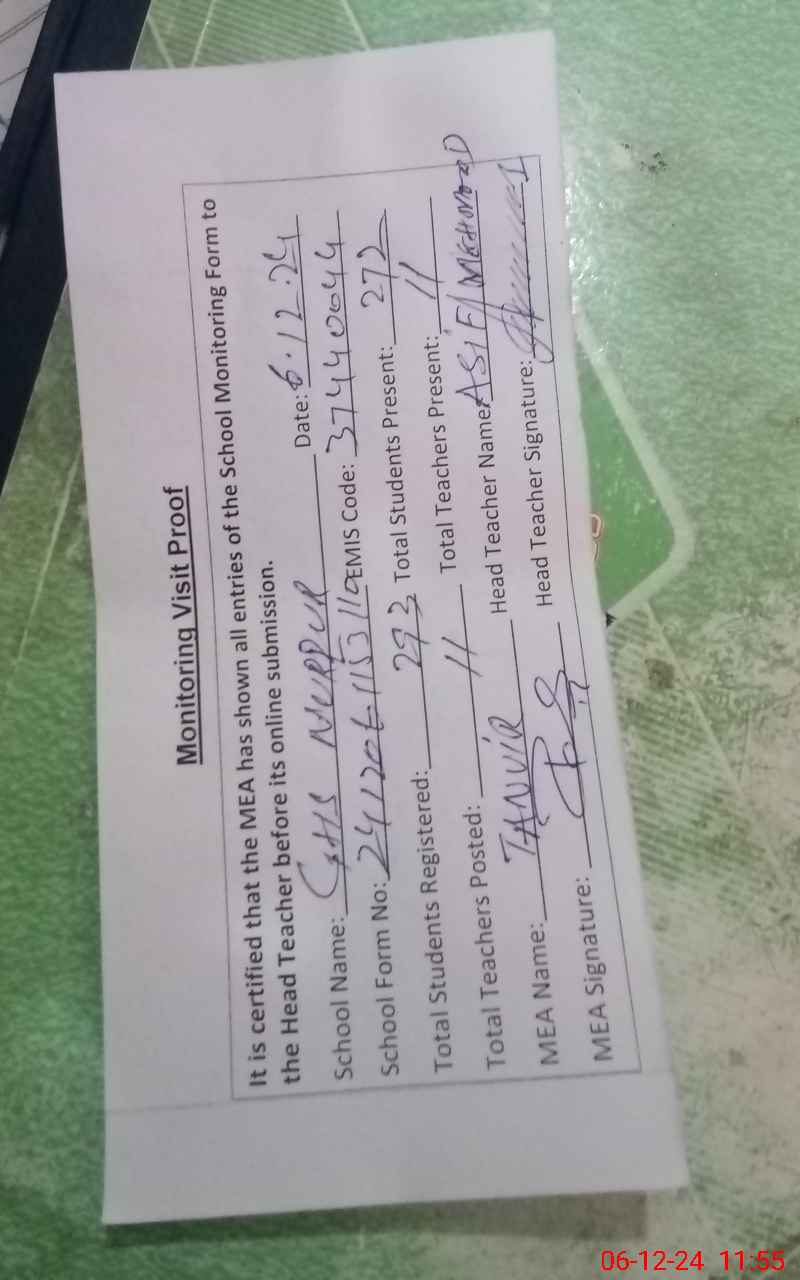 Monitoring Visit Proof
It is certified that the MEA has shown all entries of the School Monitoring Form to
the Head Teacher before its online submission.
School Name: GHS NURPUR Date: 6.12.24
School Form No: EMIS Code: 37440044
Total Students Registered: 293 Total Students Present: 272
Total Teachers Posted: 11 Total Teachers Present: 11
MEA Name: TANVIR Head Teacher Name: ASIF MEHMOOD
MEA Signature: Head Teacher Signature:
06-12-24 11:55